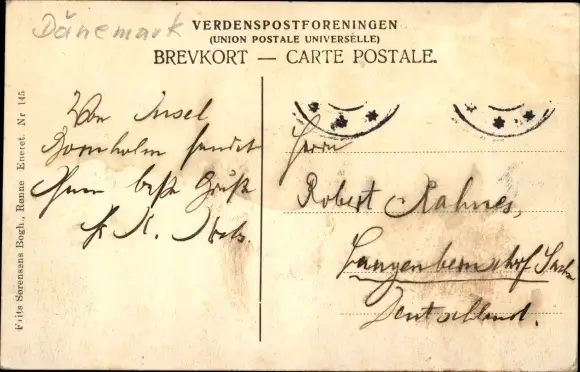 Dänemark
VERDENSPOSTFORENINGEN
(UNION POSTALE UNIVERSELLE)
BREVKORT — CARTE POSTALE.
Von Insel
Bornholm sendet
Ihnen beste Grüße
K.
Herrn
Robert Rahnes,
Langenbernsdorf Sachs
Deutschland.
Frits Sørensens Bogh., Rønne Eneret. Nr 145